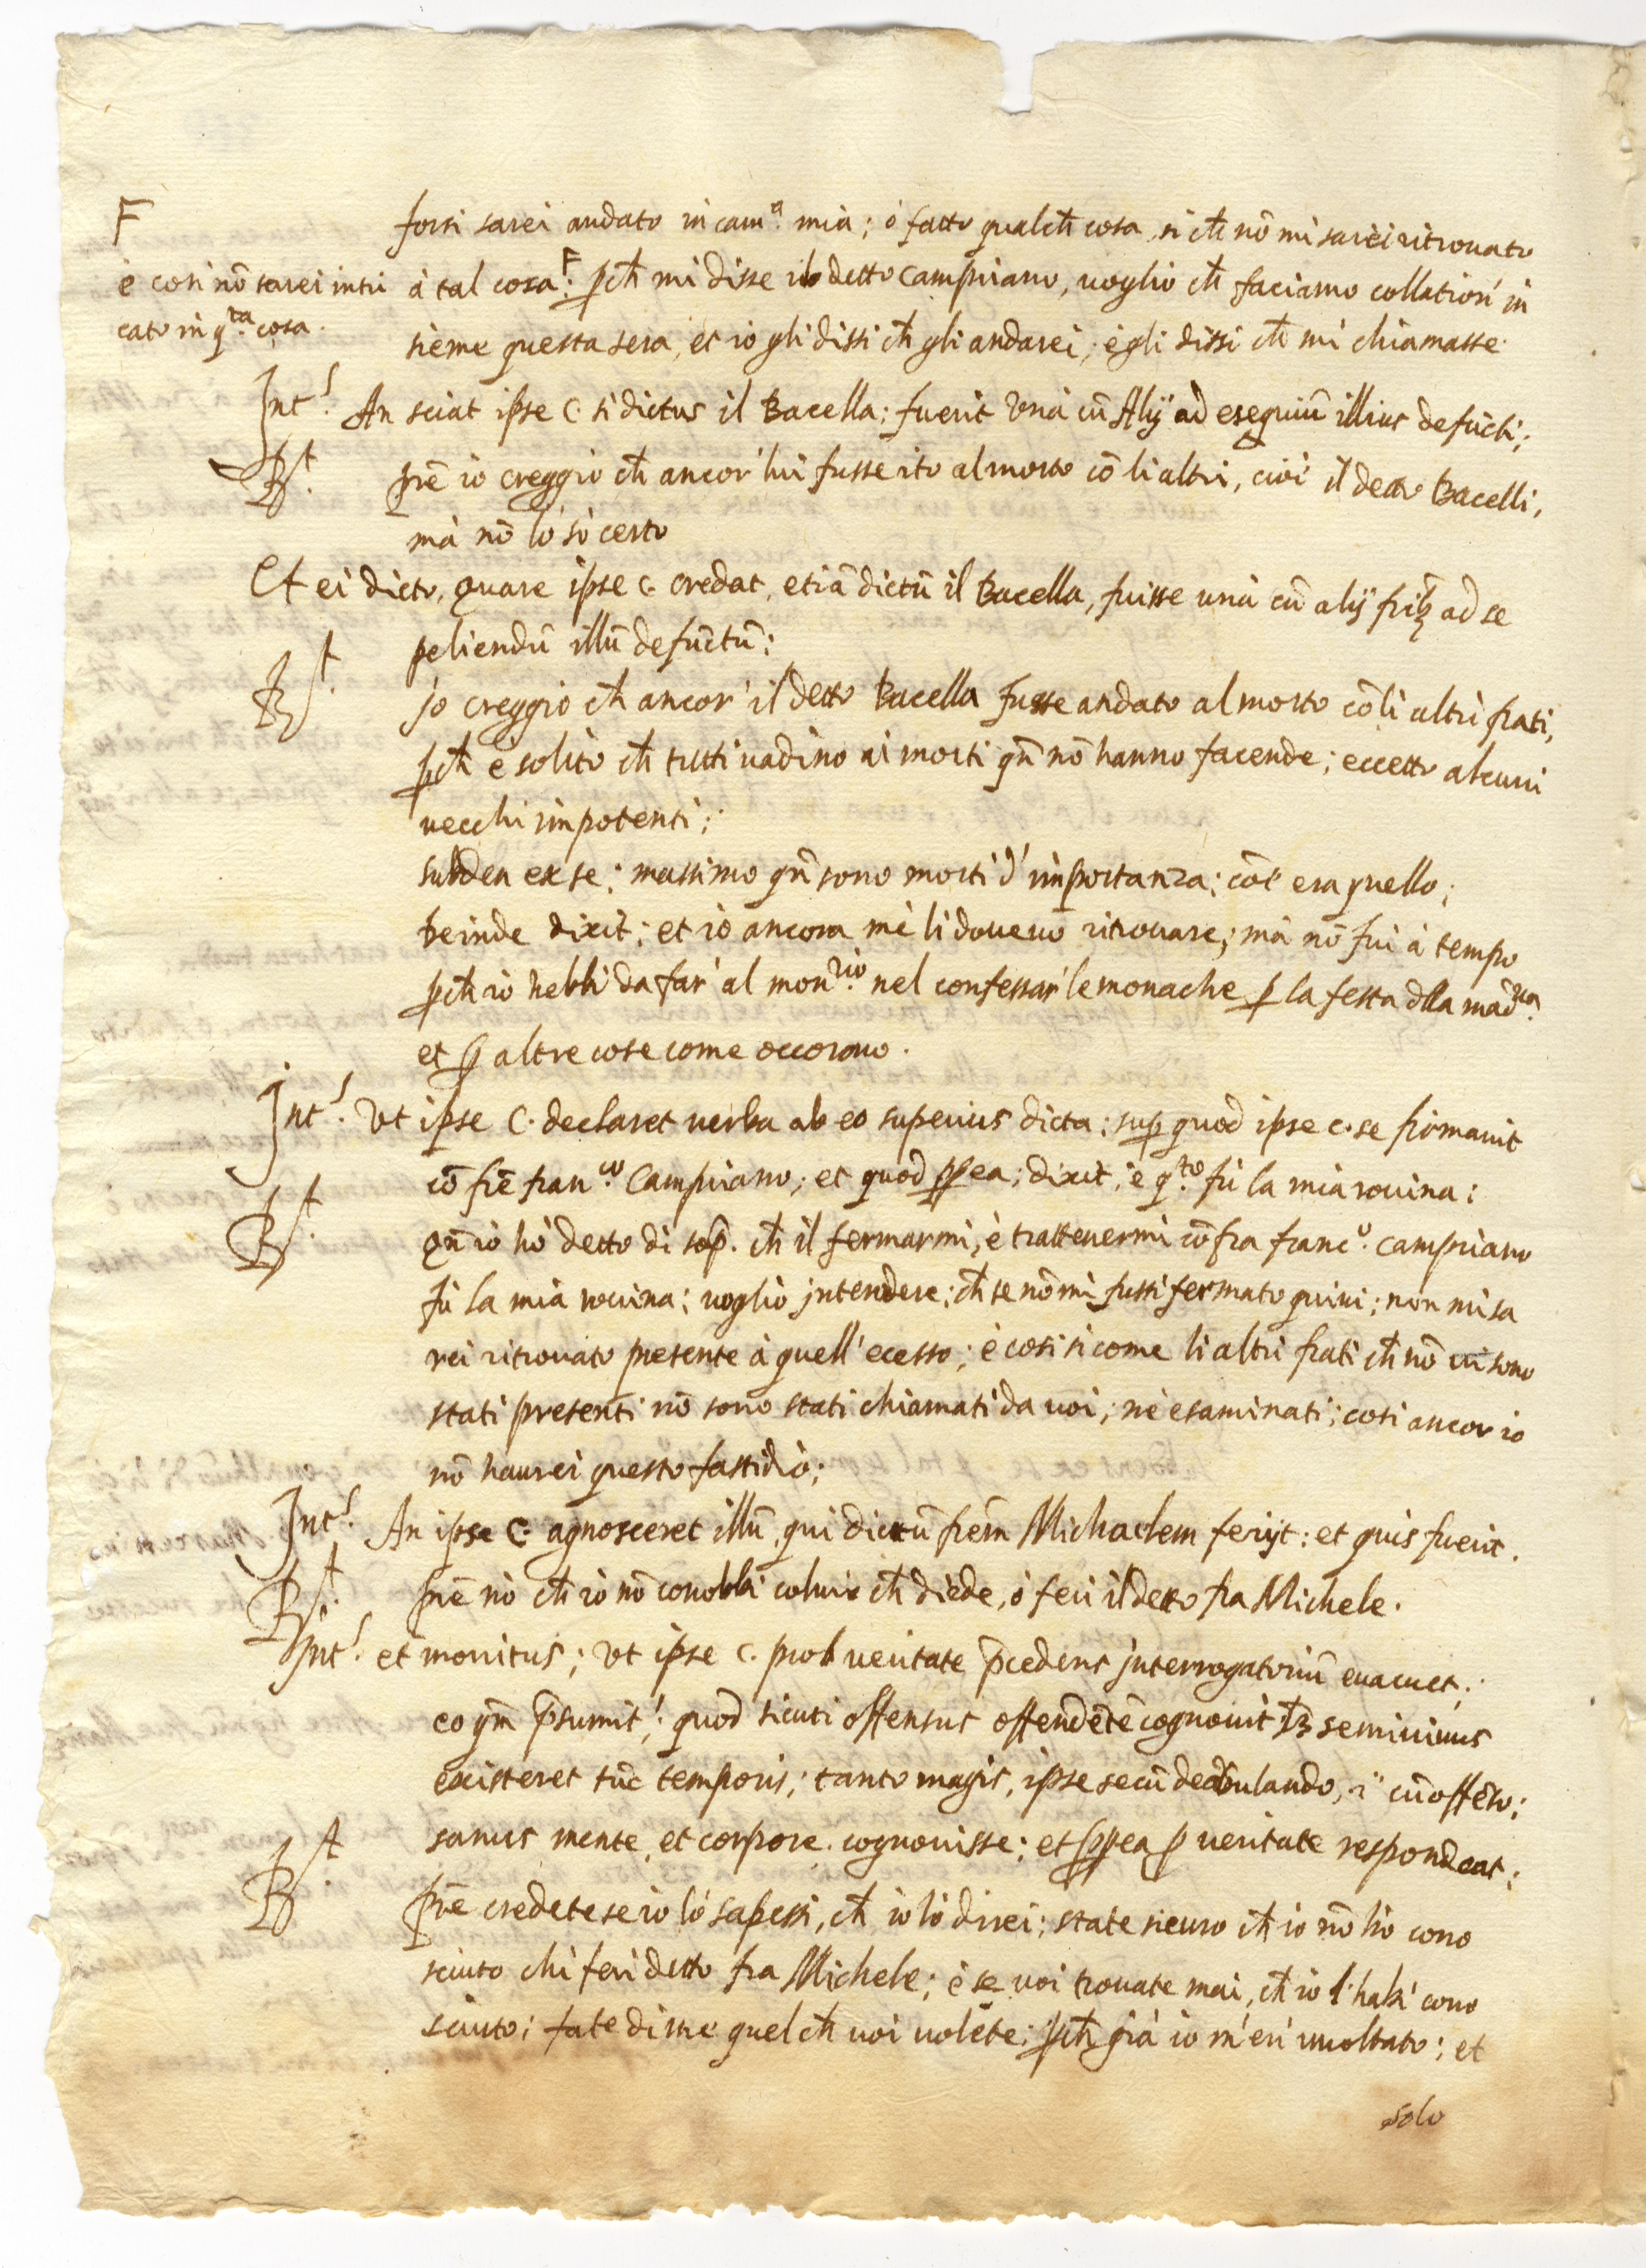 F
è cosi nō sarei intri
cato in q.ta cosa.
forsi sarei andato in cam.a mia; ò fatto qualch̄ cosa, si ch̄ nō mi sarei ritrouato
à tal cosa F: p̱ch̄ mi disse il detto Campriano, uoglio ch̄ faciamo collation' in
sieme questa sera, et io gli dissi ch̄ gli andarei, è gli dissi ch̄ mi chiamasse.
Int.s An sciat ipse C. si dictus il Bacella: fuerit vnà cū Alÿ ad esequiū illius defūcti;
R.t pr̄e io creggio ch̄ ancor' lui fusse ito al morto cō li altri, cioè il detto Bacelli,
mà nō lo sò certo
Et ei dicto, quare ipse C. credat, etiā dictū il Bacella, fuisse unà cū alÿ fr̄ibꝫ ad se
peliendū illū defūctū:
R.t Jo creggio ch̄ ancor' il detto Bacella fusse andato al morto cō li altri frati,
p̱ch̄ è solito ch̄ tutti uadino ai morti qn̄ nō hanno facende; eccetto alcuni
uecchi impotenti;
subden ex se: massimo qn̄ sono morti d'importanza; cōe era quello;
deinde dixit; et io ancora mè li doueuo ritrouare; mà nō fui à tempo
p̱ch̄ io hebbi da far' al mon.rio nel confessar' le monache p̱ la festa dlla mad.na
et p̱ altre cose come occorono.
Int.s Vt ipse C. declaret uerba ab eo superius dicta: sup̱ quod ipse C. se firmauit
cō fr̄e fran.co Campriano; et quod p̱p̱ea; dixit, è q.to fù la mia rouina:
R.t Qn̄ io hò detto di sop̱. ch̄ il fermarmi, è trattenermi cō fra franc.o Campriano
fù la mia rouina: uoglio intendere: ch̄ se nō mi fussi fermato quiui; non mi sa
rei ritrouato presente à quell' ecesso; è cosi si come li altri frati ch̄ nō ui sono
stati presenti nō sono stati chiamati da uoi; nè esaminati; cosi ancor io
nō haurei questo fastidio;
Int.s An ipse C. agnosceret illū, qui dictū frēm Michaelem ferÿt: et quis fuerit.
R.t pr̄e nò ch̄ io nō conobbi colui ch̄ diede, ò ferì il detto fra Michele.
Int.s et monitus; vt ipse C. pro ueritate p̄cedens interrogatoriū euacuet;
eo qm̄ p̄sumit.r quod sicuti offensus offendētē cognouit lꝫ semiuiuus
existeret tūc temporis; tanto magis, ipse secū deābulando, i cū offēso;
sanus mente, et corpore. cognouisse: et p̱p̱ea p̱ ueritate respondeat;
R.t pr̄e credete se io lo sapessi, ch̄ io lo direi; state sicuro ch̄ io nō hò cono
sciuto chi ferì detto fra Michele; è se uoi trouate mai, ch̄ io l'habbi cono
sciuto; fate di me quel ch̄ uoi uolete; p̱ch̄ già io m'eri uuoltato; et
solo